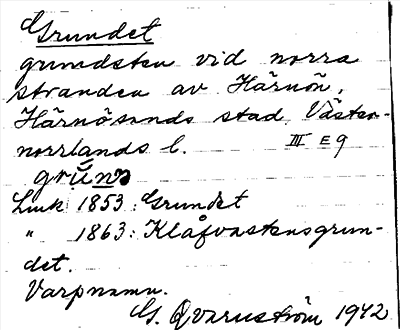 Grundet
grundsten vid norra
stranden av Härnön,
Härnösands stad, Väster-
norrlands l. III E 9
grùnnə
Link 1853: Grundet
" 1863: Klåfvastensgrun-
det.
Varpnamn.
G. Qvarnström 1942